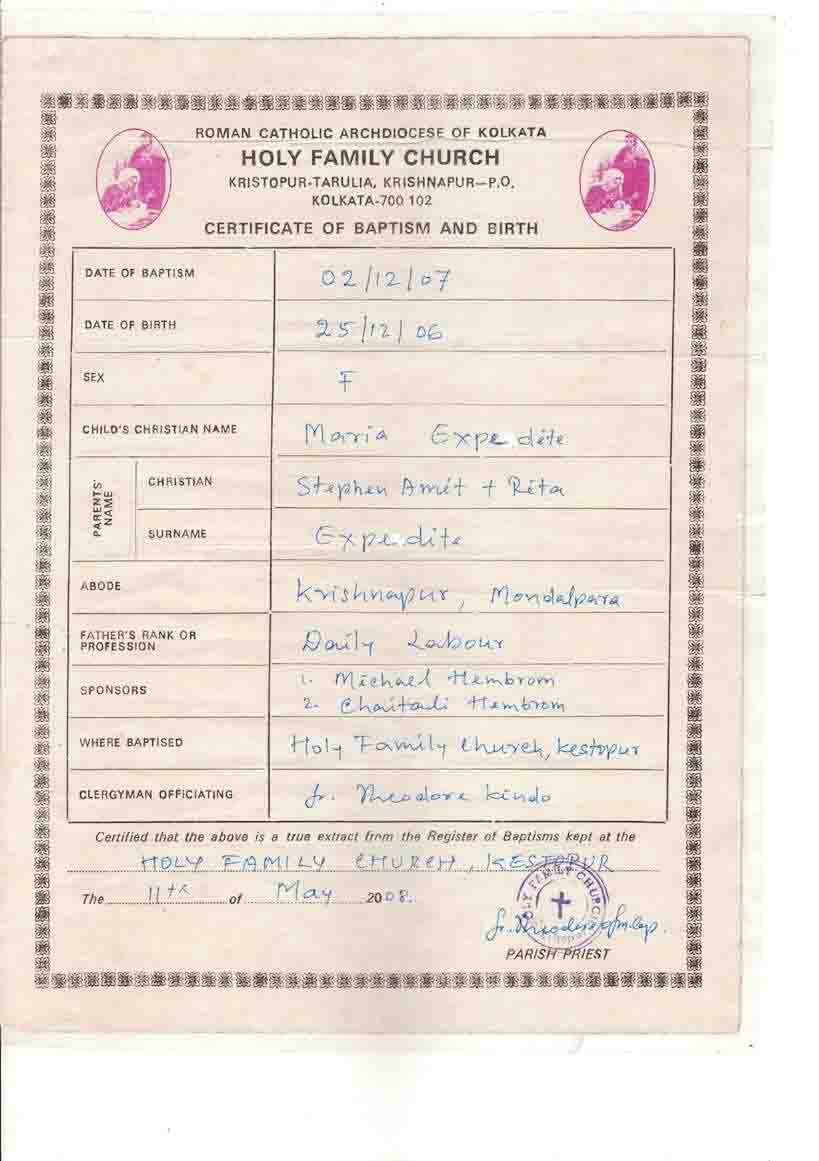 ROMAN CATHOLIC ARCHDIOCESE OF KOLKATA
HOLY FAMILY CHURCH
KRISTOPUR-TARULIA, KRISHNAPUR—P.O.
KOLKATA-700 102
CERTIFICATE OF BAPTISM AND BIRTH
DATE OF BAPTISM 02/12/07
DATE OF BIRTH 25/12/06
SEX F
CHILD'S CHRISTIAN NAME Maria Expedite
PARENTS' NAME
CHRISTIAN Stephen Amit + Rita
SURNAME Expedite
ABODE Krishnapur, Mondalpara
FATHER'S RANK OR PROFESSION Daily Labour
SPONSORS 1. Michael Hembrom
2. Chaitali Hembrom
WHERE BAPTISED Holy Family Church, Kestopur
CLERGYMAN OFFICIATING fr. Theodore Kindo
Certified that the above is a true extract from the Register of Baptisms kept at the
HOLY FAMILY CHURCH, KESTOPUR
The 11th of May 2008.
HOLY FAMILY CHURCH
fr. Theodore ofm.cap.
PARISH PRIEST